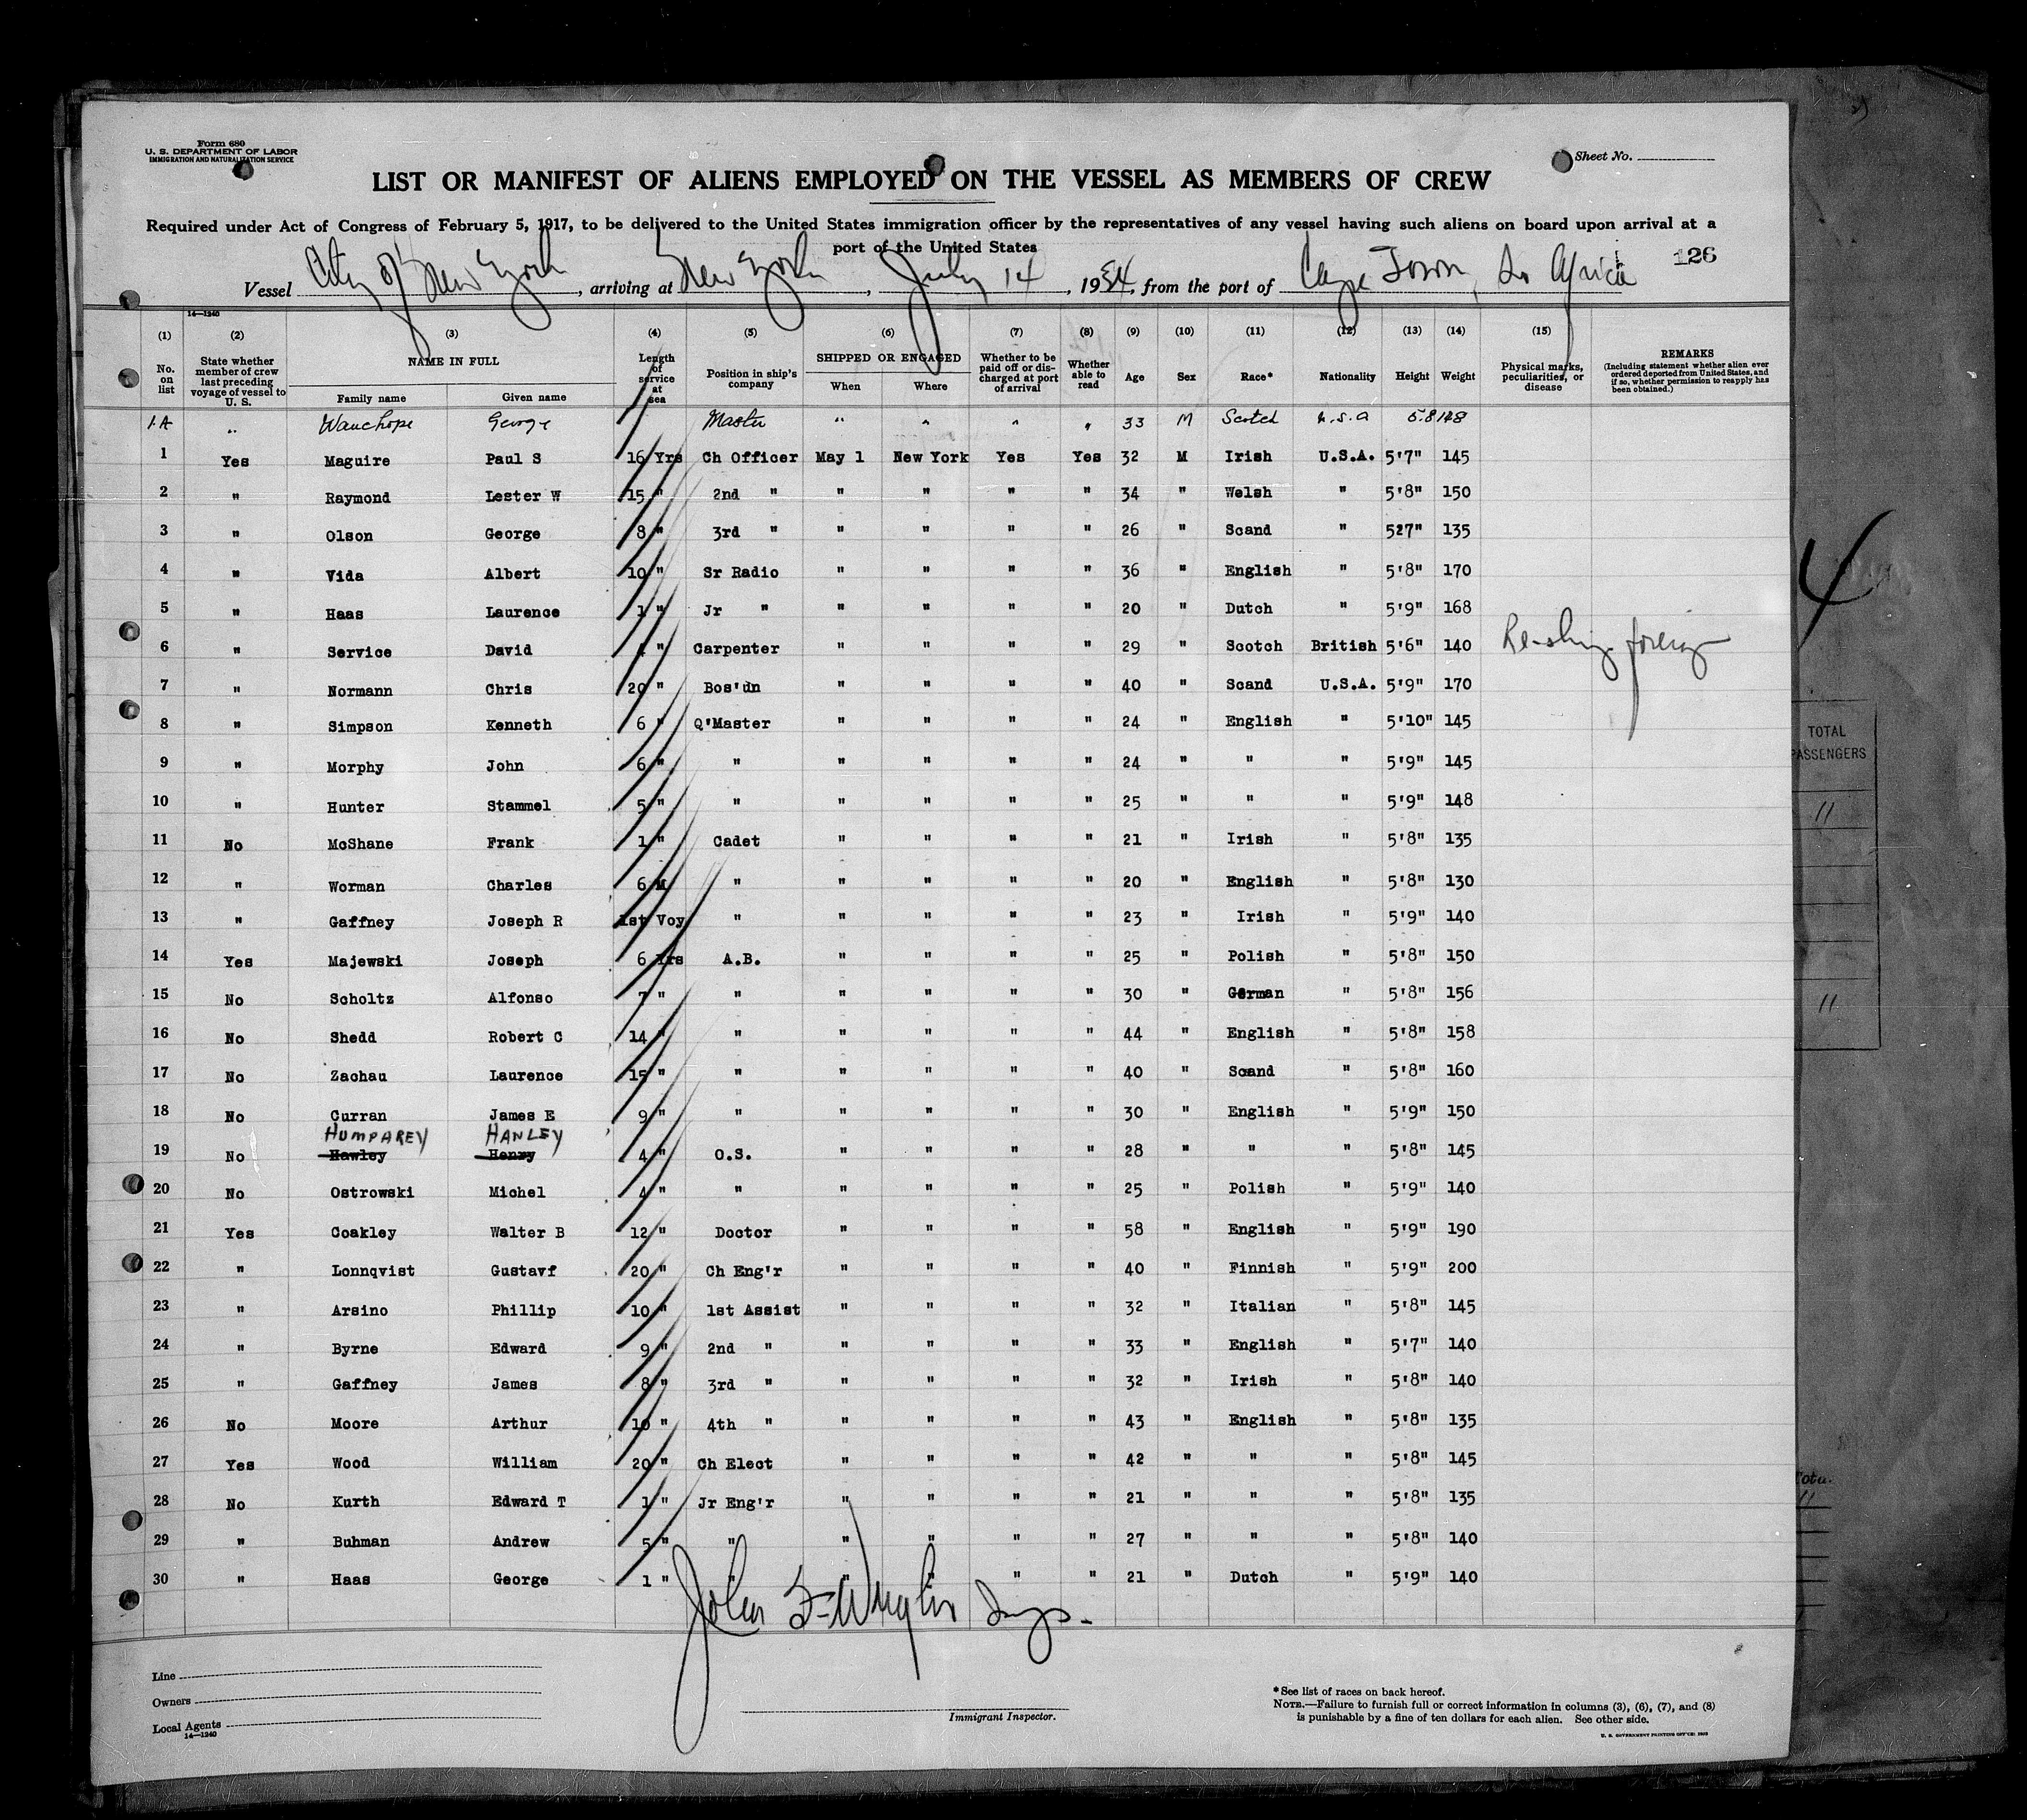 Form 680
U. S. DEPARTMENT OF LABOR
IMMIGRATION AND NATURALIZATION SERVICE
Sheet No.
LIST OR MANIFEST OF ALIENS EMPLOYED ON THE VESSEL AS MEMBERS OF CREW
Required under Act of Congress of February 5, 1917, to be delivered to the United States immigration officer by the representatives of any vessel having such aliens on board upon arrival at a
port of the United States
126
Vessel City of New York, arriving at New York, July 14, 1934, from the port of Cape Town, So Africa
14—1240
(1) (2) (3) (4) (5) (6) (7) (8) (9) (10) (11) (12) (13) (14) (15)
No. on list State whether member of crew last preceding voyage of vessel to U. S. NAME IN FULL Family name Given name Length of service at sea Position in ship's company SHIPPED OR ENGAGED When Where Whether to be paid off or discharged at port of arrival Whether able to read Age Sex Race* Nationality Height Weight Physical marks, peculiarities, or disease REMARKS (Including statement whether alien ever ordered deported from United States, and if so, whether permission to reapply has been obtained.)
1A " Wauchope George Master " " " " 33 M Scotch U.S.A 5.8 148
1 Yes Maguire Paul S 16 Yrs Ch Officer May 1 New York Yes Yes 32 M Irish U.S.A. 5'7" 145
2 " Raymond Lester W 15 " 2nd " " " " " 34 " Welsh " 5'8" 150
3 " Olson George 8 " 3rd " " " " " 26 " Scand " 527" 135
4 " Vida Albert 10 " Sr Radio " " " " 36 " English " 5'8" 170
5 " Haas Laurence 1 " Jr " " " " " 20 " Dutch " 5'9" 168
6 " Service David 4 " Carpenter " " " " 29 " Scotch British 5'6" 140 Re-ship foreign
7 " Normann Chris 20 " Bos'un " " " " 40 " Scand U.S.A. 5'9" 170
8 " Simpson Kenneth 6 " Q'Master " " " " 24 " English " 5'10" 145
9 " Morphy John 6 " " " " " " 24 " " " 5'9" 145
10 " Hunter Stammel 5 " " " " " " 25 " " " 5'9" 148
11 No McShane Frank 1 " Cadet " " " " 21 " Irish " 5'8" 135
12 " Worman Charles 6 M " " " " " 20 " English " 5'8" 130
13 " Gaffney Joseph R 1st Voy " " " " " 23 " Irish " 5'9" 140
14 Yes Majewski Joseph 6 Yrs A.B. " " " " 25 " Polish " 5'8" 150
15 No Scholtz Alfonso 7 " " " " " " 30 " German " 5'8" 156
16 No Shedd Robert C 14 " " " " " " 44 " English " 5'8" 158
17 No Zachau Laurence 15 " " " " " " 40 " Scand " 5'8" 160
18 No Curran James E 9 " " " " " " 30 " English " 5'9" 150
HUMPAREY HANLEY
19 No Hawley Henry 4 " O.S. " " " " 28 " " " 5'8" 145
20 No Ostrowski Michel 4 " " " " " " 25 " Polish " 5'9" 140
21 Yes Coakley Walter B 12 " Doctor " " " " 58 " English " 5'9" 190
22 " Lonnqvist Gustavf 20 " Ch Eng'r " " " " 40 " Finnish " 5'9" 200
23 " Arsino Phillip 10 " 1st Assist " " " " 32 " Italian " 5'8" 145
24 " Byrne Edward 9 " 2nd " " " " " 33 " English " 5'7" 140
25 " Gaffney James 8 " 3rd " " " " " 32 " Irish " 5'8" 140
26 No Moore Arthur 10 " 4th " " " " " 43 " English " 5'8" 135
27 Yes Wood William 20 " Ch Elect " " " " 42 " " " 5'8" 145
28 No Kurth Edward T 1 " Jr Eng'r " " " " 21 " " " 5'8" 135
29 " Buhman Andrew 5 " " " " " " 27 " " " 5'8" 140
30 " Haas George 1 " " " " " 21 " Dutch " 5'9" 140
John
Line
Owners
Local Agents
14—1240
Immigrant Inspector.
*See list of races on back hereof.
NOTE.—Failure to furnish full or correct information in columns (3), (6), (7), and (8)
is punishable by a fine of ten dollars for each alien. See other side.
U. S. GOVERNMENT PRINTING OFFICE: 1933
4
TOTAL
PASSENGERS
11
11
Total
11